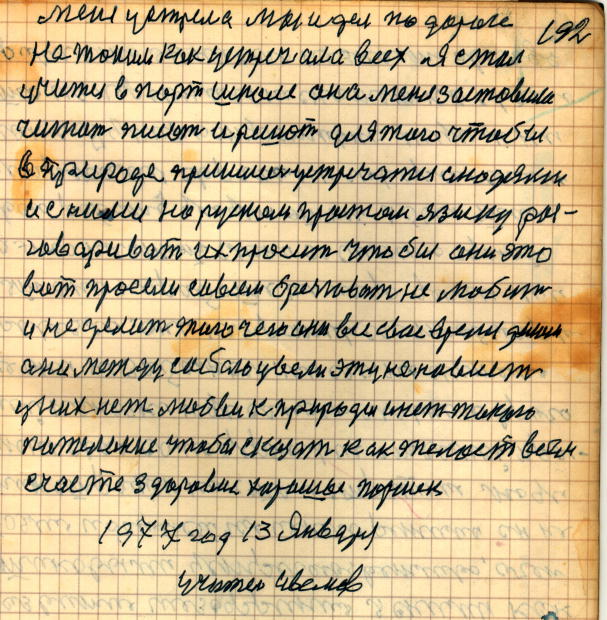 меня устрела мы идем по дороге 192
но таким как устречала всех я стал
учити в парт школе она меня заставила
читат писат и решат для того чтобы
в природе пришлих устречати с людями
и с ними на руском простом языку раз-
говариват их просит чтобы они это
вот просили совсем брезговат не любит
и не делит того чего они все свое время
они между собою увели эту неновист
у них нет любви к природи и нет такого
пожелание чтобы сказат как желост всем
счасте здоровие хорошое
1977 год 13 Января
учител Иванов